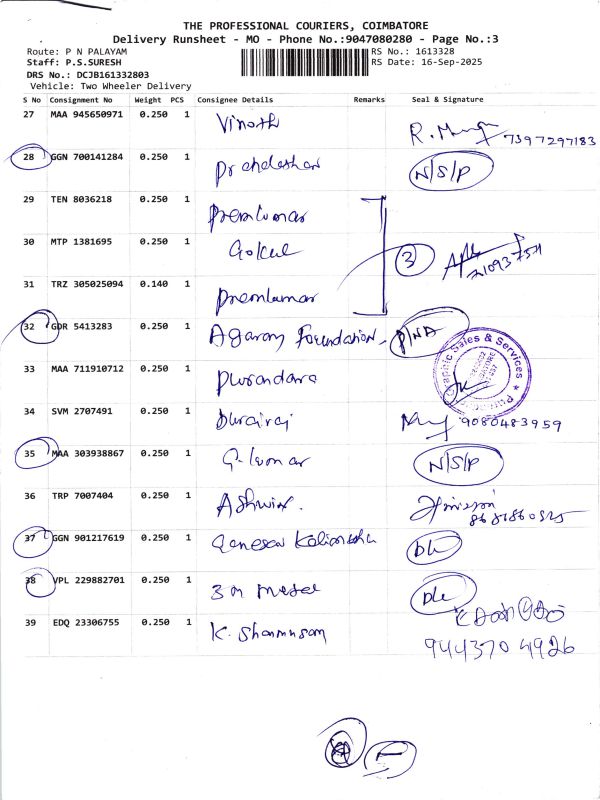 THE PROFESSIONAL COURIERS, COIMBATORE
Delivery Runsheet - MO - Phone No.:9047080280 - Page No.:3
Route: P N PALAYAM
RS No.: 1613328
Staff: P.S.SURESH
RS Date: 16-Sep-2025
DRS No.: DCJB161332803
Vehicle: Two Wheeler Delivery
S No Consignment No Weight PCS Consignee Details Remarks Seal & Signature
27 MAA 945650971 0.250 1 Vinoth 7397297183
28 GGN 700141284 0.250 1 N/S/P
29 TEN 8036218 0.250 1 Premkumar
30 MTP 1381695 0.250 1 Gokul 3
31 TRZ 305025094 0.140 1 Premkumar
32 GDR 5413283 0.250 1 Agaram Foundation P/NA
Graphic Sales & Services
33 MAA 711910712 0.250 1 Purandara
34 SVM 2707491 0.250 1 Durairaj 9080483959
35 MAA 303938867 0.250 1 G. Kumar N/S/P
36 TRP 7007404 0.250 1 Ashwin.
37 GGN 901217619 0.250 1 Ganesan DL
38 VPL 229882701 0.250 1 3 M Metal DL
39 EDQ 23306755 0.250 1 K. Shanmugam
9443704926